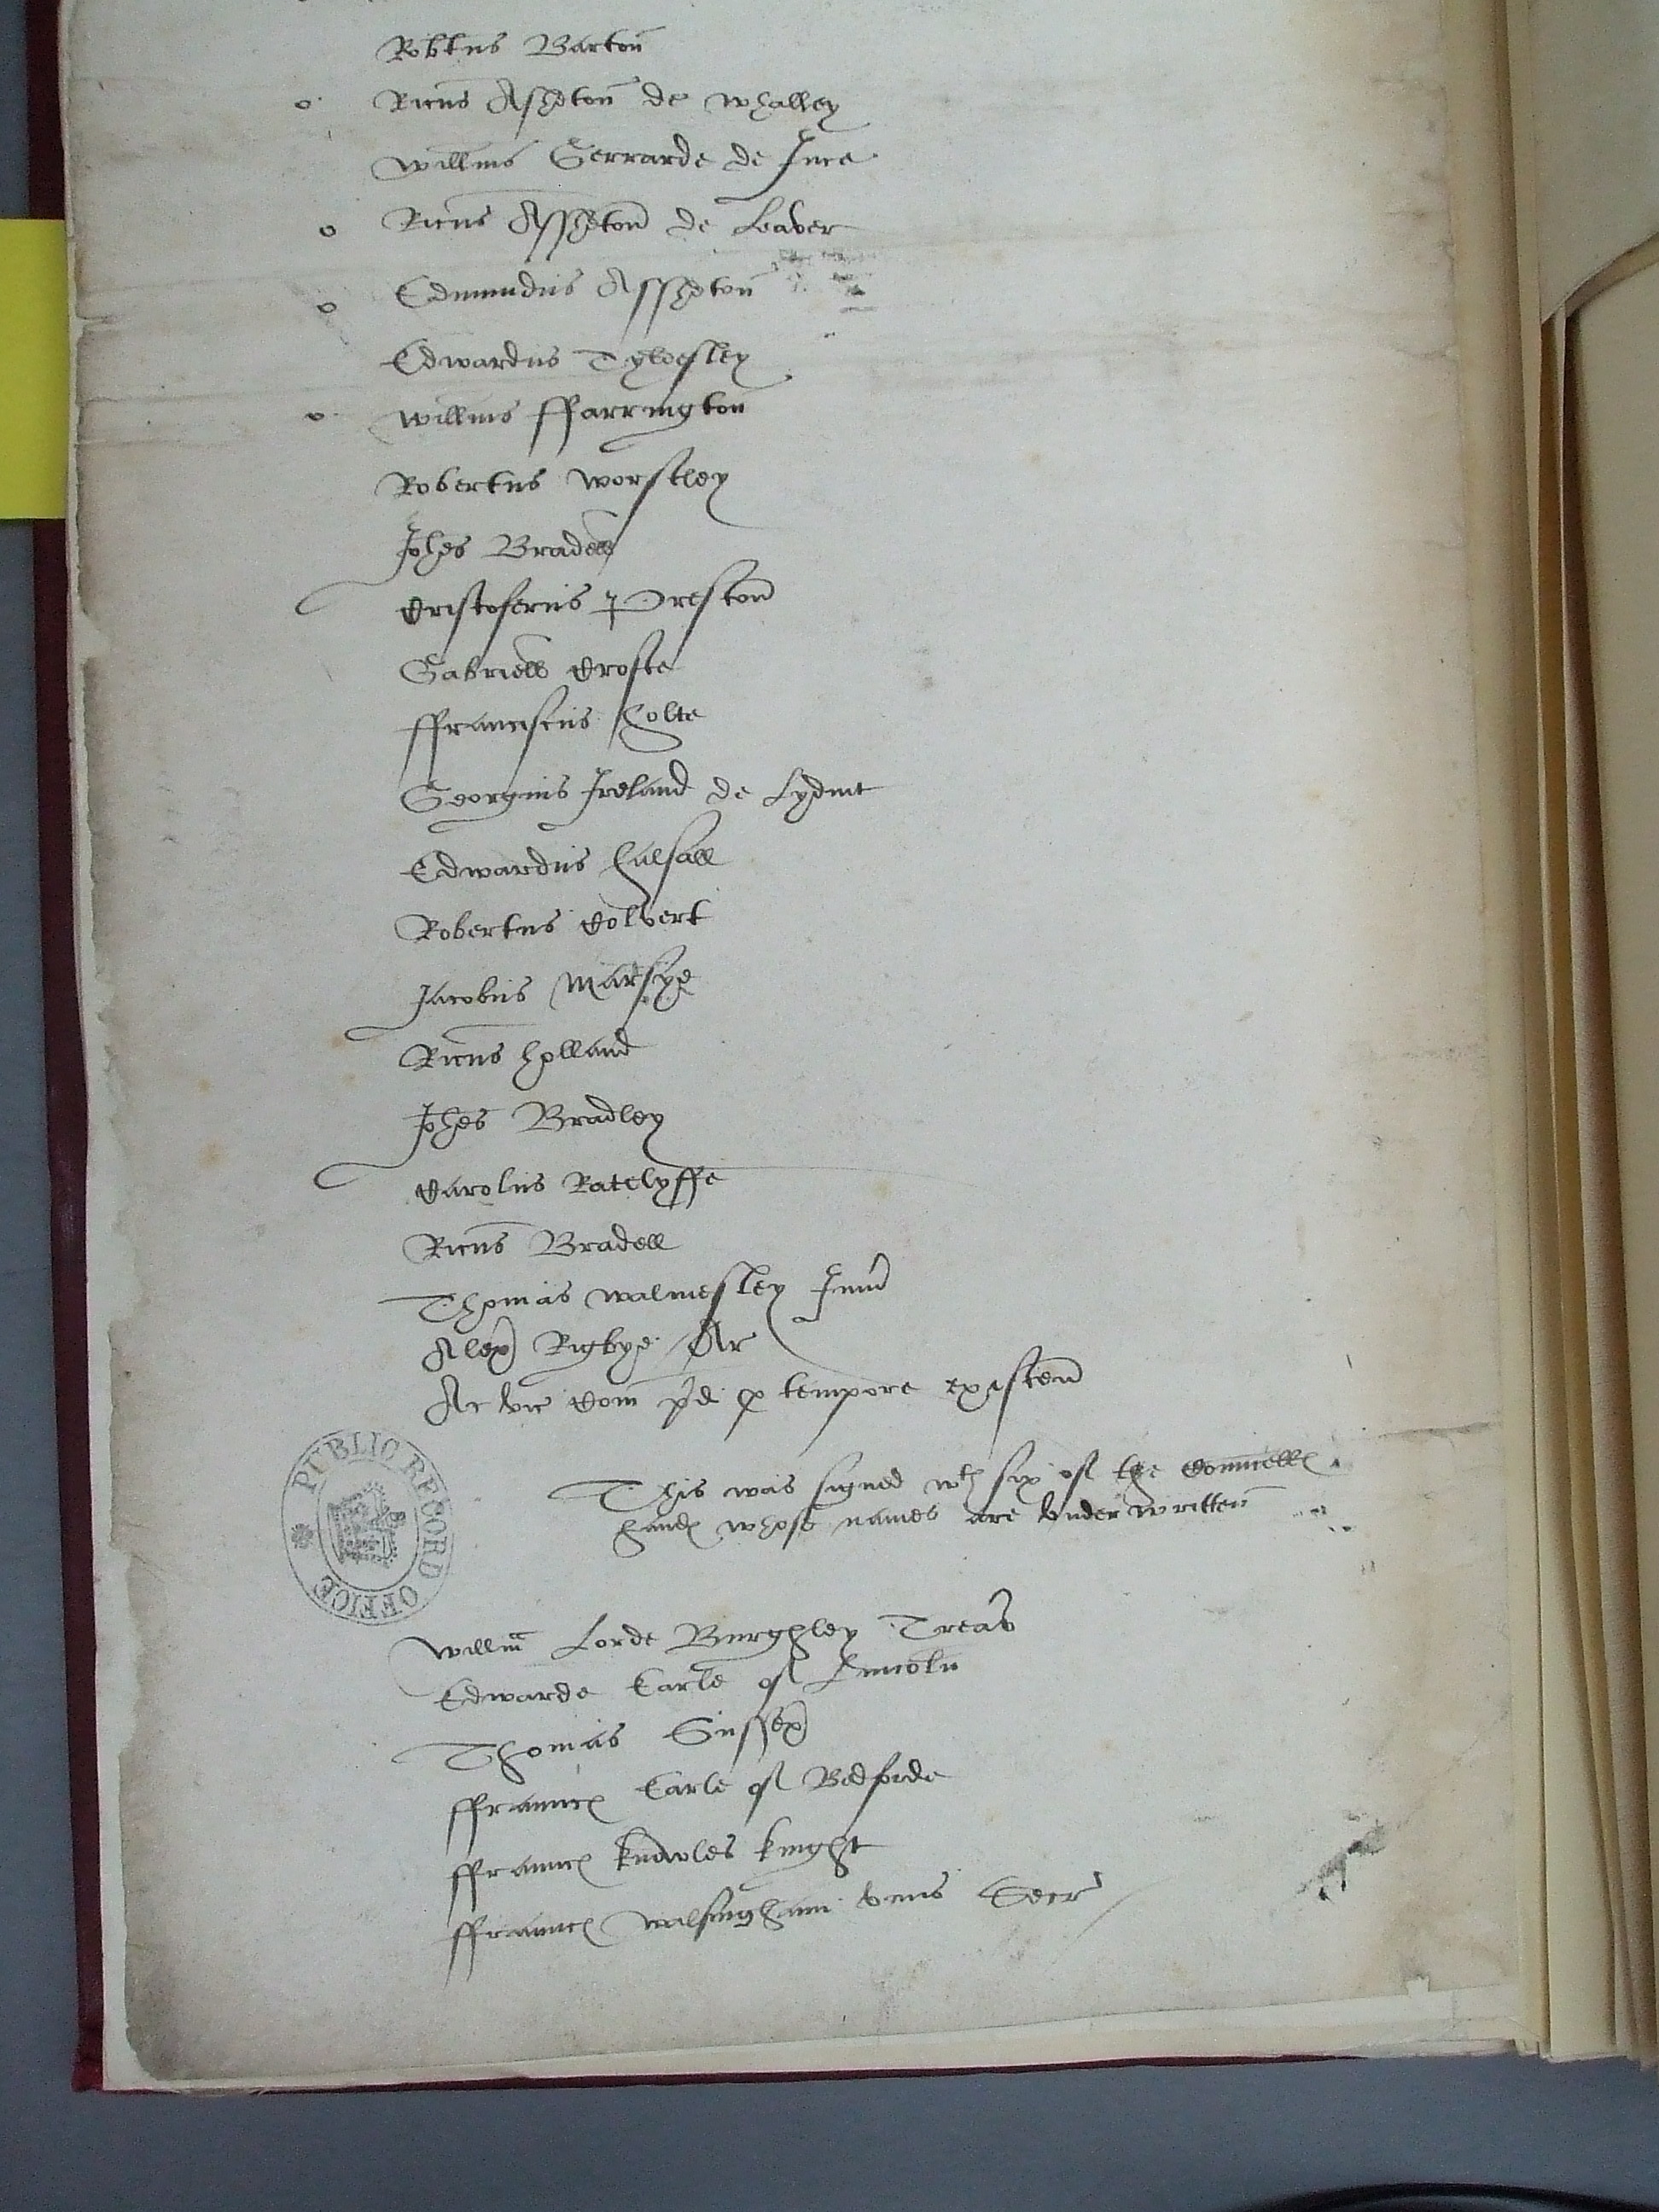 Robtus Barton
o Ricus Assheton de Whalley
Willms Gerrarde de Ince
o Ricus Assheton de Leaver
o Edmundus Assheton
Edwardus Tyldesley
o Willms ffarrington
Robertus Worsley
Johes Bradell
Cristoferus Preston
Gabriell Croste
ffranciscus holte
Georgius Ireland de Lydiat
Edwardus halsall
Robertus Colvert
Jacobus Marshe
Ricus holland
Johes Bradley
Carolus Ratclyffe
Ricus Bradell
Thomas Walmesley Junr
Alex Rigbye Ar
Ac vic Com pd p tempore existen
This was signed wth six of the Councelles
handes whose names are vnder written
Willm Lorde Burghley Treas
Edwarde Earle of Lincoln
Thomas Sussex
ffraunces Earle of Bedforde
ffraunces knowles knight
ffraunces walsingham vnus Secr
PUBLIC RECORD OFFICE